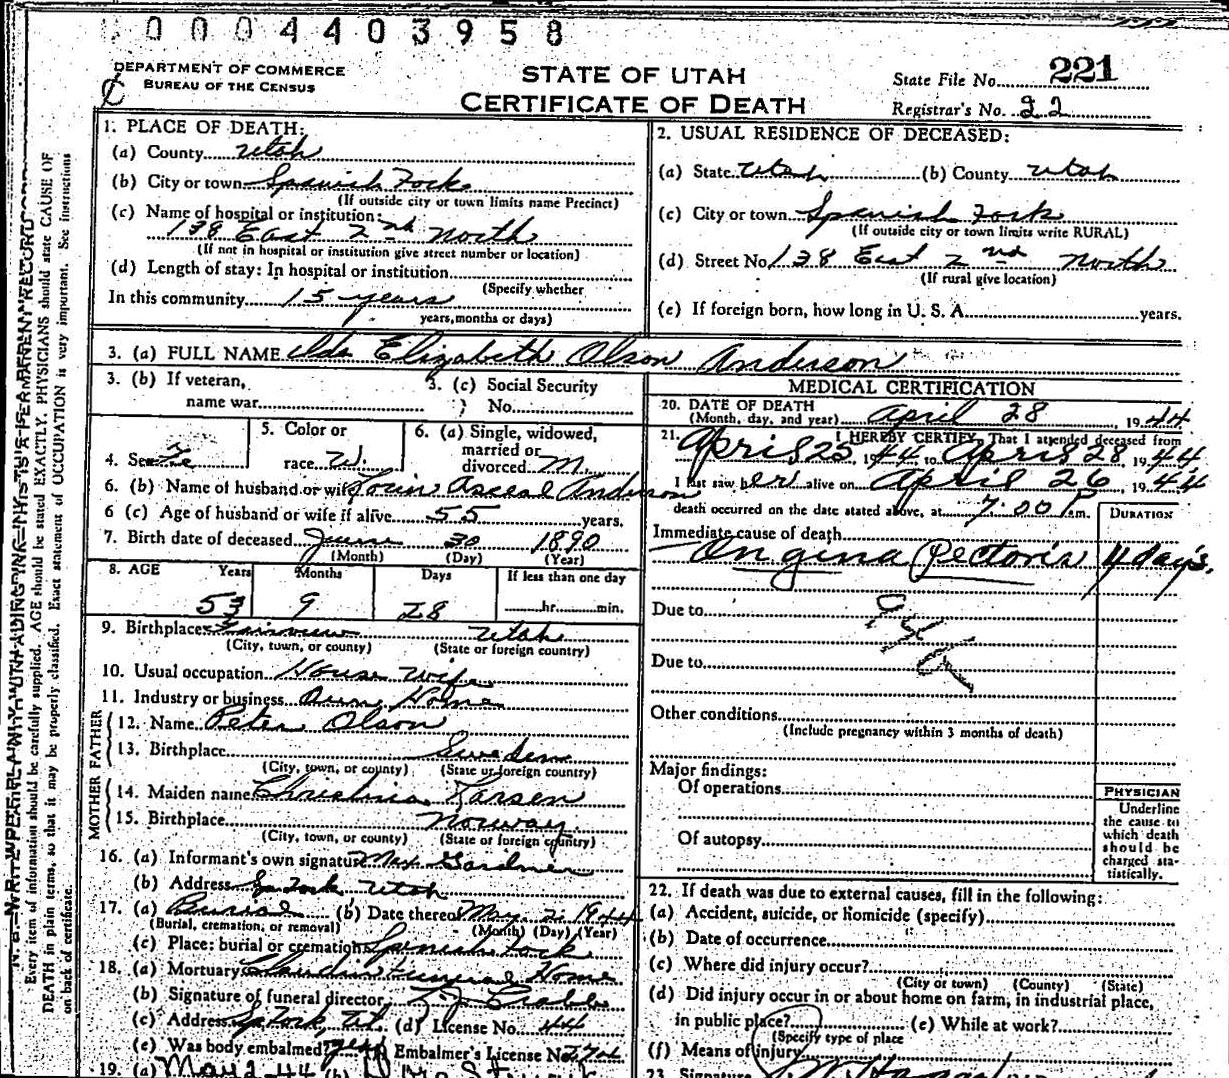 0 0 0 4 4 0 3 9 5 8
DEPARTMENT OF COMMERCE
BUREAU OF THE CENSUS
STATE OF UTAH
CERTIFICATE OF DEATH
State File No. 221
Registrar's No. 22
1. PLACE OF DEATH:
(a) County Utah
(b) City or town Spanish Fork
(If outside city or town limits name Precinct)
(c) Name of hospital or institution:
138 East 2nd North
(If not in hospital or institution give street number or location)
(d) Length of stay: In hospital or institution
(Specify whether
In this community 15 years
years, months or days)
2. USUAL RESIDENCE OF DECEASED:
(a) State Utah (b) County Utah
(c) City or town Spanish Fork
(If outside city or town limits write RURAL)
(d) Street No. 138 East 2nd North
(If rural give location)
(e) If foreign born, how long in U. S. A. years.
3. (a) FULL NAME Ida Elizabeth Olson Anderson
3. (b) If veteran,
name war
3. (c) Social Security
No.
4. Sex Fe
5. Color or
race W.
6. (a) Single, widowed,
married or
divorced M.
6. (b) Name of husband or wife Anderson
6 (c) Age of husband or wife if alive 55 years.
7. Birth date of deceased June 30 1890
(Month) (Day) (Year)
8. AGE Years Months Days If less than one day
53 9 28 hr. min.
9. Birthplace Fairview Utah
(City, town, or county) (State or foreign country)
10. Usual occupation House Wife
11. Industry or business Own Home
FATHER
12. Name Peter Olson
13. Birthplace Sweden
(City, town, or county) (State or foreign country)
MOTHER
14. Maiden name Christina Larsen
15. Birthplace Norway
(City, town, or county) (State or foreign country)
16. (a) Informant's own signature Max Gardner
(b) Address Sp Fork Utah
17. (a) Burial (b) Date thereof May 2 1944
(Burial, cremation, or removal) (Month) (Day) (Year)
(c) Place: burial or cremation Spanish Fork
18. (a) Mortuary Claudin Funeral Home
(b) Signature of funeral director
(c) Address Sp Fork, Ut. (d) License No. 44
(e) Was body embalmed? yes Embalmer's License No. 274
19. (a) May 2-44 (b)
MEDICAL CERTIFICATION
20. DATE OF DEATH
(Month, day, and year) April 28, 1944
21. I HEREBY CERTIFY, That I attended deceased from
April 25, 1944 to April 28, 1944
I last saw her alive on April 26, 1944
death occurred on the date stated above, at 7:00 P.m.
DURATION
Immediate cause of death
Angina Pectoris 4 days.
Due to
Due to
Other conditions
(Include pregnancy within 3 months of death)
Major findings:
Of operations
Of autopsy
PHYSICIAN
Underline
the cause to
which death
should be
charged sta-
tistically.
22. If death was due to external causes, fill in the following:
(a) Accident, suicide, or Homicide (specify)
(b) Date of occurrence
(c) Where did injury occur?
(City or town) (County) (State)
(d) Did injury occur in or about home on farm, in industrial place,
in public place? (e) While at work?
(Specify type of place
(f) Means of injury
23. Signature
N. B.—WRITE PLAINLY, WITH UNFADING INK—THIS IS A PERMANENT RECORD
Every item of information should be carefully supplied. AGE should be stated EXACTLY. PHYSICIANS should state CAUSE OF
DEATH in plain terms, so that it may be properly classified. Exact statement of OCCUPATION is very important. See instructions
on back of certificate.